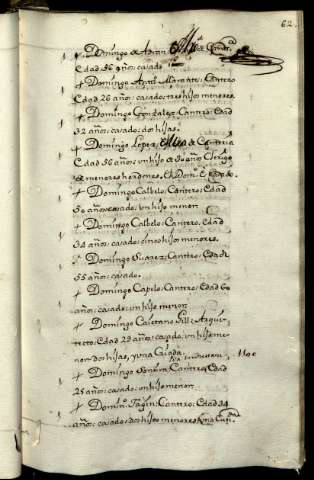 62
Domingo de Aran Mro de Canta
Edad 56 años: casado
Domingo Antt. Cantero
Edad 26 años: casado: tres hijos menores
Domingo Gonzalez: Cantero: Edad
32 años: casado: dos hijas.
Domingo Lopez, Mro de Canteria
Edad 56 años: un hijo de 20 años Clerigo
de menores
Domingo Calbelo: Cantero: Edad
50 años: casado: un hijo menor
Domingo Calbelo: Cantero: Edad
34 años: casado: cinco hijos menores.
Domingo Suarez: Cantero: Edad
55 años: casado.
Domingo Capelo: Cantero: Edad 60
años: casado: un hijo menor
Domingo Caietano Sill: Arqui-
tecto: Edad 29 años: casado: un hijo me-
nor dos hijas, y una Criada.
Domingo Cantero, Edad
25 años: casado: un hijo menor
Domin.o Fagin: Cantero: Edad 34
años: casado: dos hijos menores